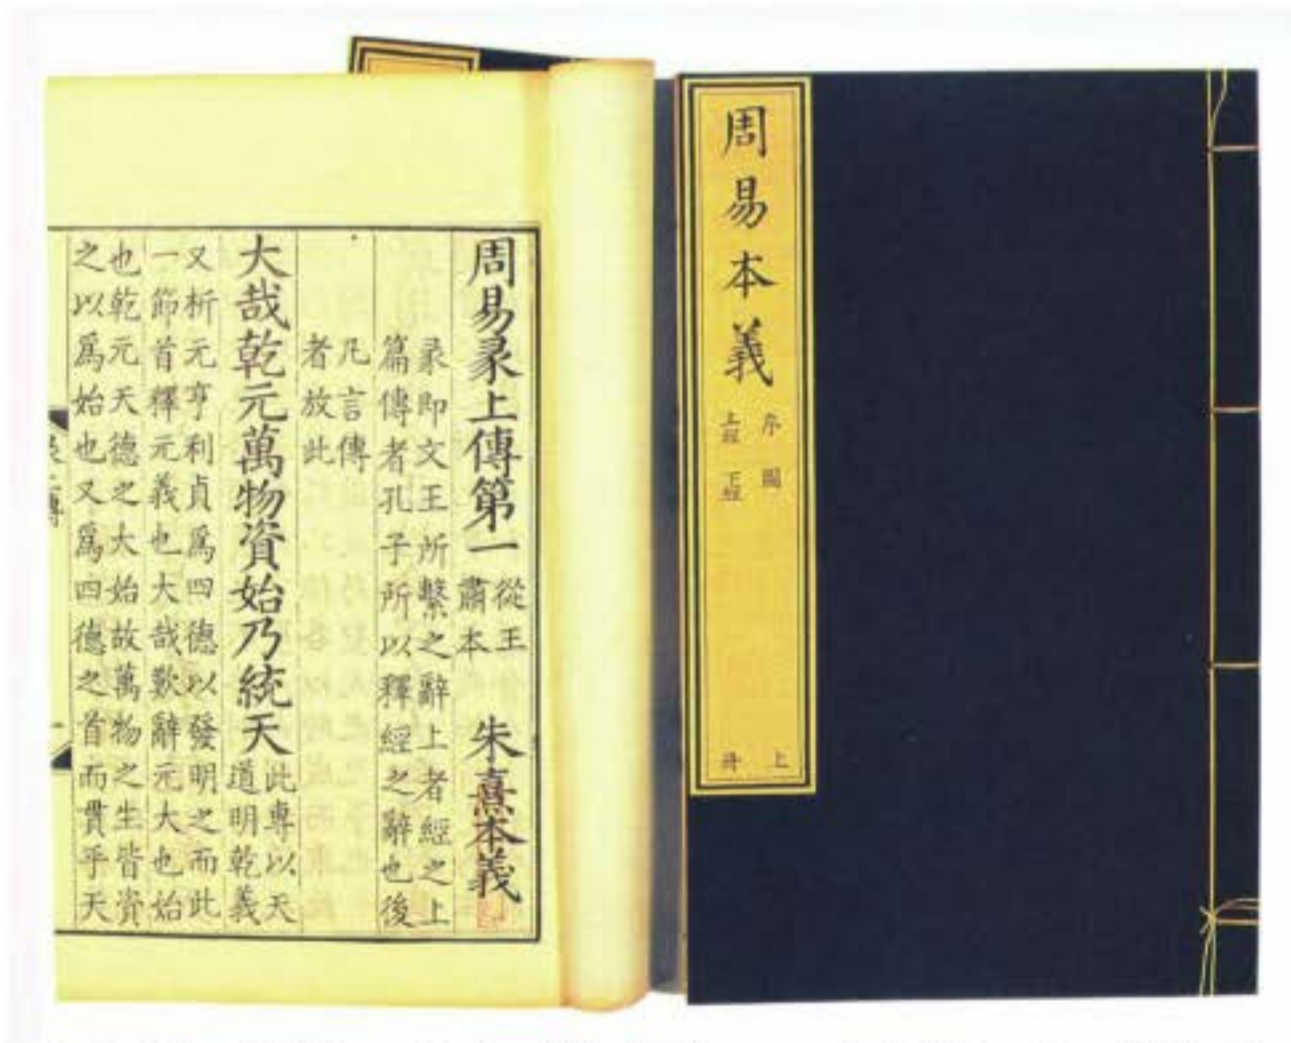 周易本義
序圖
上經下經
上冊
周易彖上傳第一
從王
肅本
朱熹本義
彖即文王所繫之辭上者經之上
篇傳者孔子所以釋經之辭也後
凡言傳
者放此
大哉乾元萬物資始乃統天
此專以天
道明乾義
又析元亨利貞爲四德以發明之而此
一節首釋元義也大哉歎辭元大也始
也乾元天德之大始故萬物之生皆資
之以爲始也又爲四德之首而貫乎天